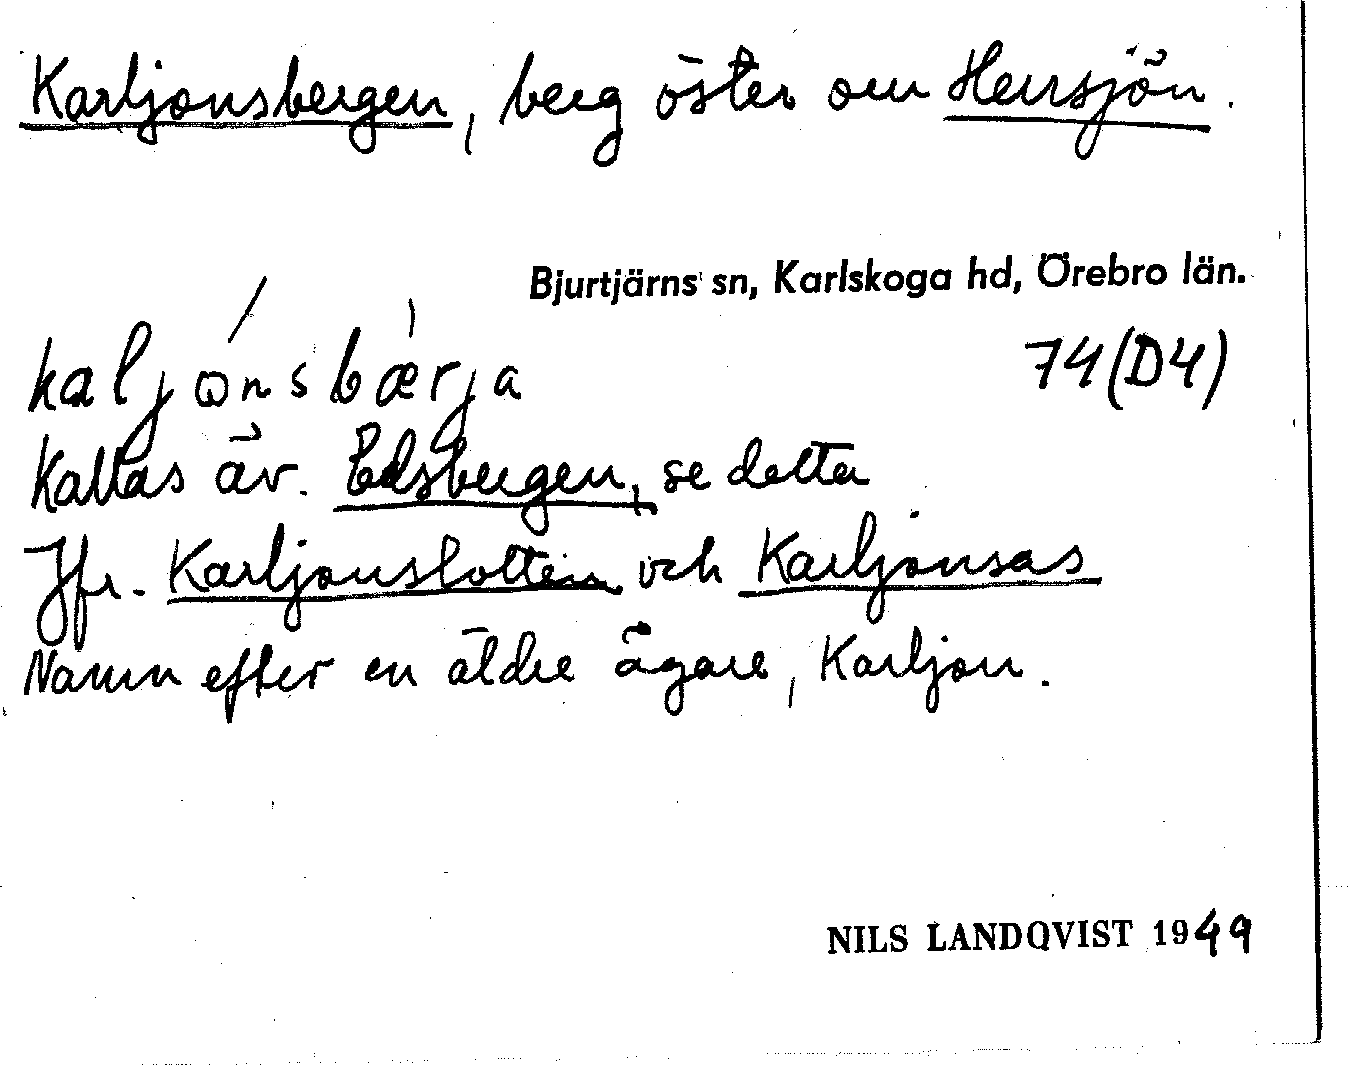 Karljonsbergen, berg öster om Herrsjön.
Bjurtjärns sn, Karlskoga hd, Örebro län.
kaljonsbærja 74(D4)
Kallas äv. Edsbergen, se detta
Jfr. Karljonslotten och Karljonsas
Namn efter en äldre ägare, Karljon.
NILS LANDQVIST 1949